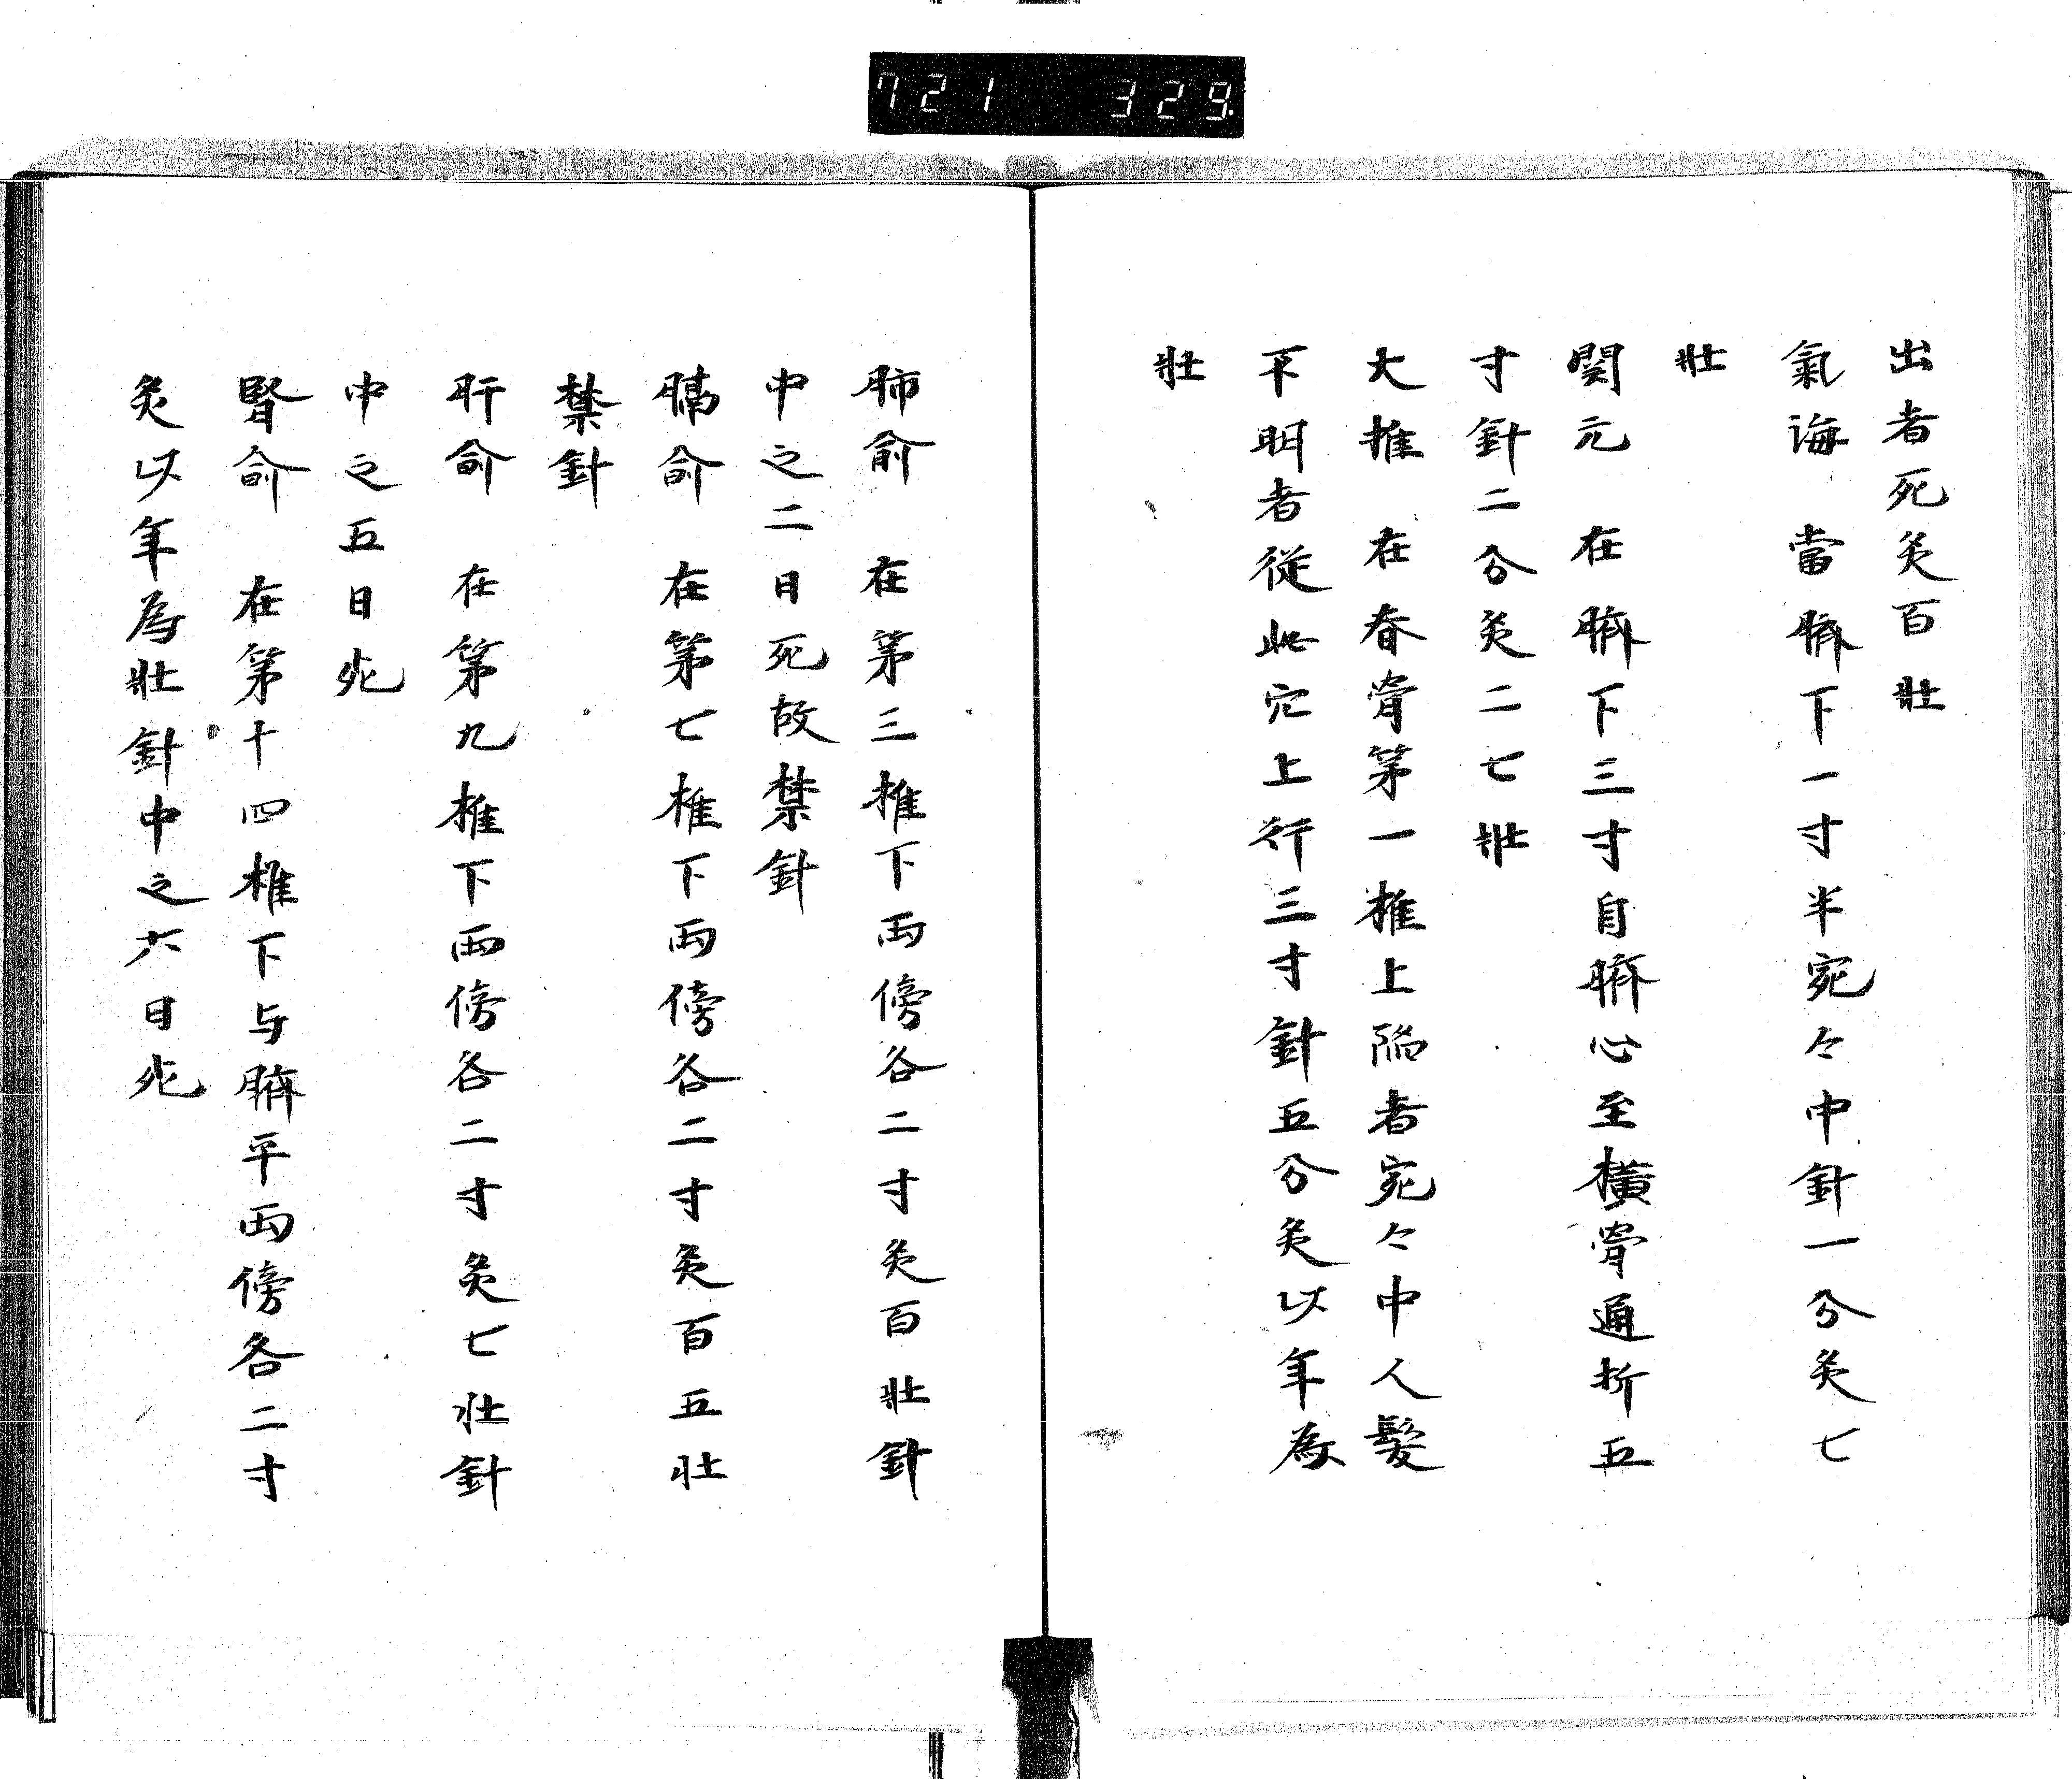 721 329
出者死灸百壯
氣海 當臍下一寸半宛々中針一分灸七
壯
関元 在臍下三寸自臍心至橫骨通折五
寸針二分灸二七壯
大椎 在脊骨第一椎上陷者宛々中人髮
不明者從此穴上行三寸針五分灸以年為
壯
肺俞 在第三椎下兩傍各二寸灸百壯針
中之二日死故禁針
膈俞 在第七椎下兩傍各二寸灸百五壯
禁針
肝俞 在第九椎下兩傍各二寸灸七壯針
中之五日死
腎俞 在第十四椎下与臍平兩傍各二寸
灸以年為壯針中之六日死